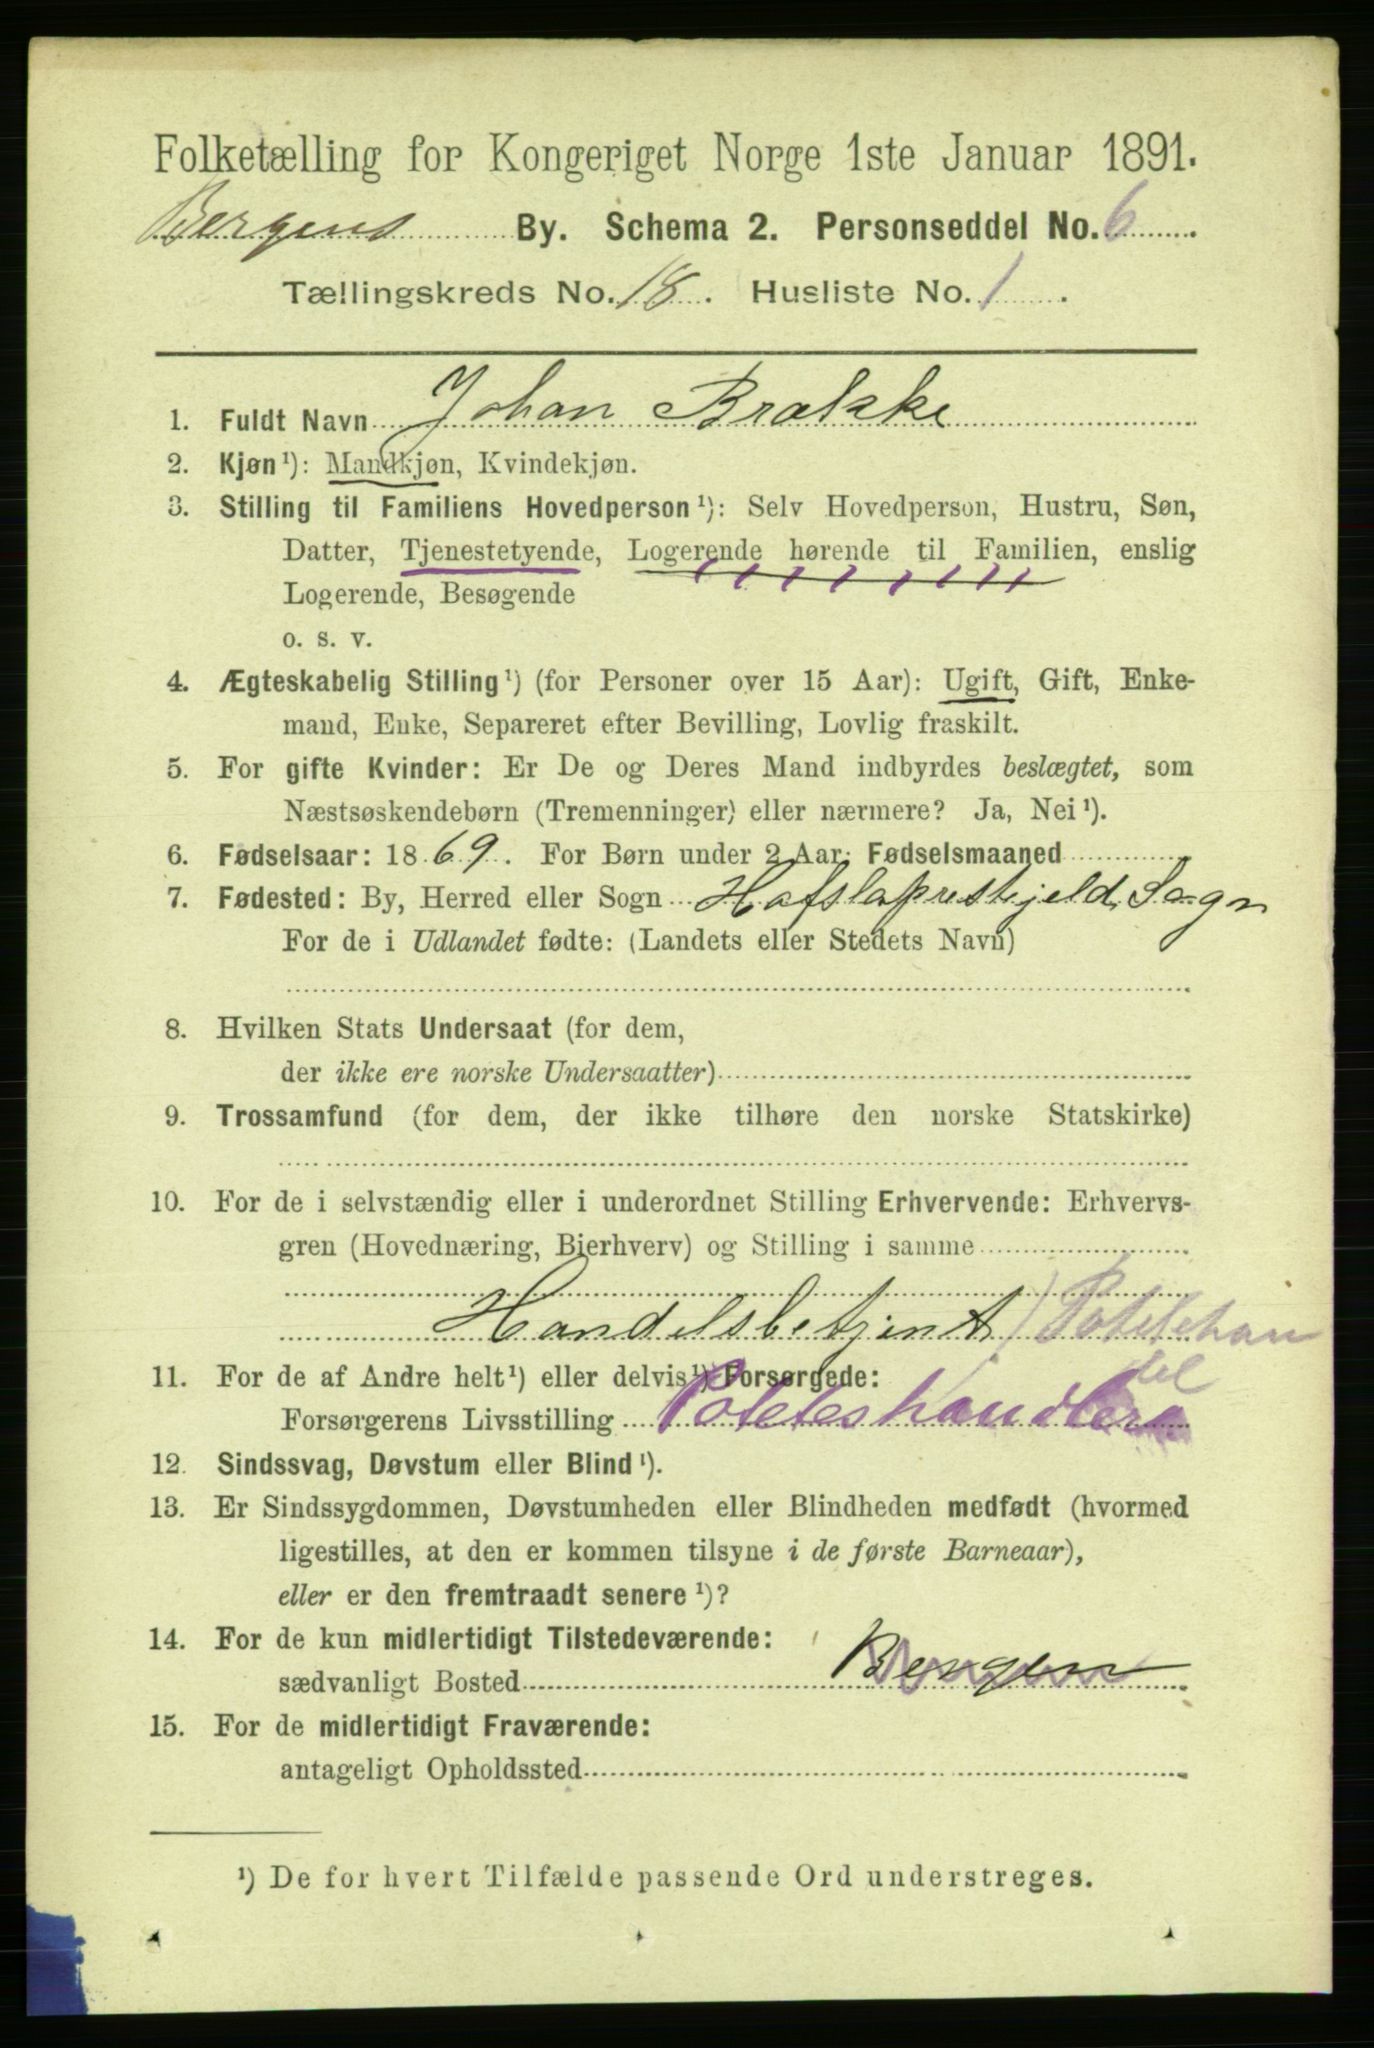 Folketælling for Kongeriget Norge 1ste Januar 1891.
Bergens By. Schema 2. Personseddel No. 6
Tællingskreds No. 18. Husliste No. 1.
1. Fuldt Navn Johan Brække
2. Kjøn¹): Mandkjøn, Kvindekjøn.
3. Stilling til Familiens Hovedperson¹): Selv Hovedperson, Hustru, Søn,
Datter, Tjenestetyende, Logerende hørende til Familien, enslig
Logerende, Besøgende
o. s. v.
4. Ægteskabelig Stilling¹) (for Personer over 15 Aar): Ugift, Gift, Enke-
mand, Enke, Separeret efter Bevilling, Lovlig fraskilt.
5. For gifte Kvinder: Er De og Deres Mand indbyrdes beslægtet, som
Næstsøskendebørn (Tremenninger) eller nærmere? Ja, Nei¹).
6. Fødselsaar: 1869. For Børn under 2 Aar: Fødselsmaaned
7. Fødested: By, Herred eller Sogn Hafsloprestgjeld, Sogn
For de i Udlandet fødte: (Landets eller Stedets Navn)
8. Hvilken Stats Undersaat (for dem,
der ikke ere norske Undersaatter)
9. Trossamfund (for dem, der ikke tilhøre den norske Statskirke)
10. For de i selvstændig eller i underordnet Stilling Erhvervende: Erhvervs-
gren (Hovednæring, Bierhverv) og Stilling i samme
Handelsbetjent / Potetehan
del
11. For de af Andre helt¹) eller delvis¹) Forsørgede:
Forsørgerens Livsstilling Poteteshandlera
12. Sindssvag, Døvstum eller Blind¹).
13. Er Sindssygdommen, Døvstumheden eller Blindheden medfødt (hvormed
ligestilles, at den er kommen tilsyne i de første Barneaar),
eller er den fremtraadt senere¹)?
14. For de kun midlertidigt Tilstedeværende:
sædvanligt Bosted Bergen
15. For de midlertidigt Fraværende:
antageligt Opholdssted
¹) De for hvert Tilfælde passende Ord understreges.